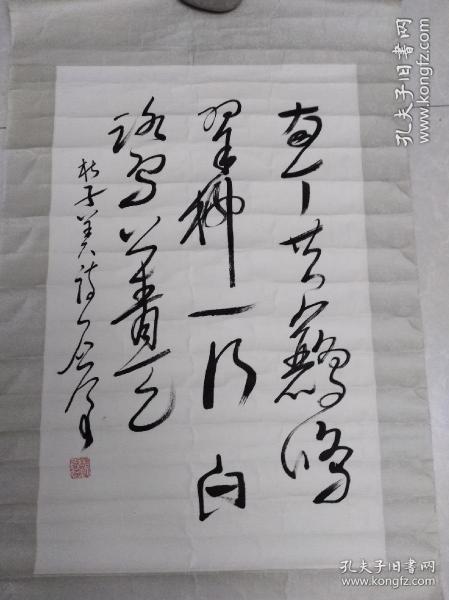 两个黄鹂鸣
翠柳一行白
鹭鸟上青天
杜子美诗
孔夫子旧书网
www.kongfz.com
孔夫子旧书网
www.kongfz.com